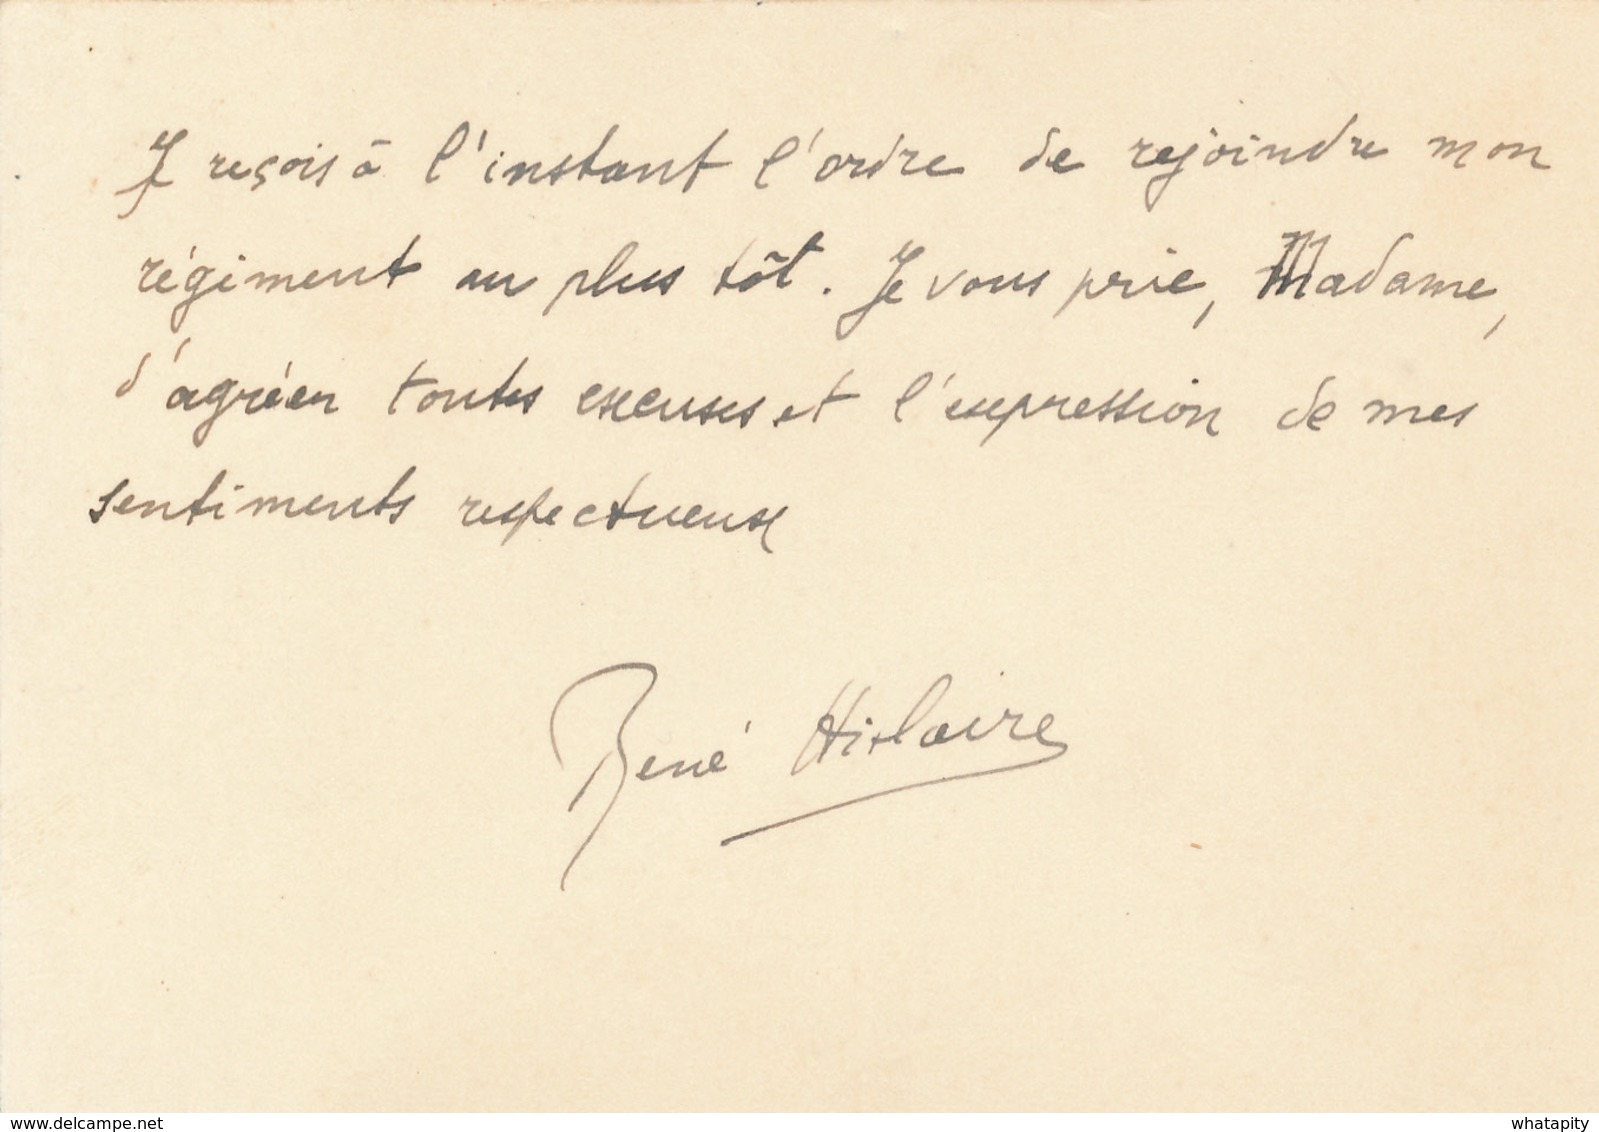 Je reçois à l'instant l'ordre de rejoindre mon
régiment au plus tôt. Je vous prie, Madame,
d'agréer toutes excuses et l'expression de mes
sentiments respectueux
René Hislaire
delcampe.net
whatapity